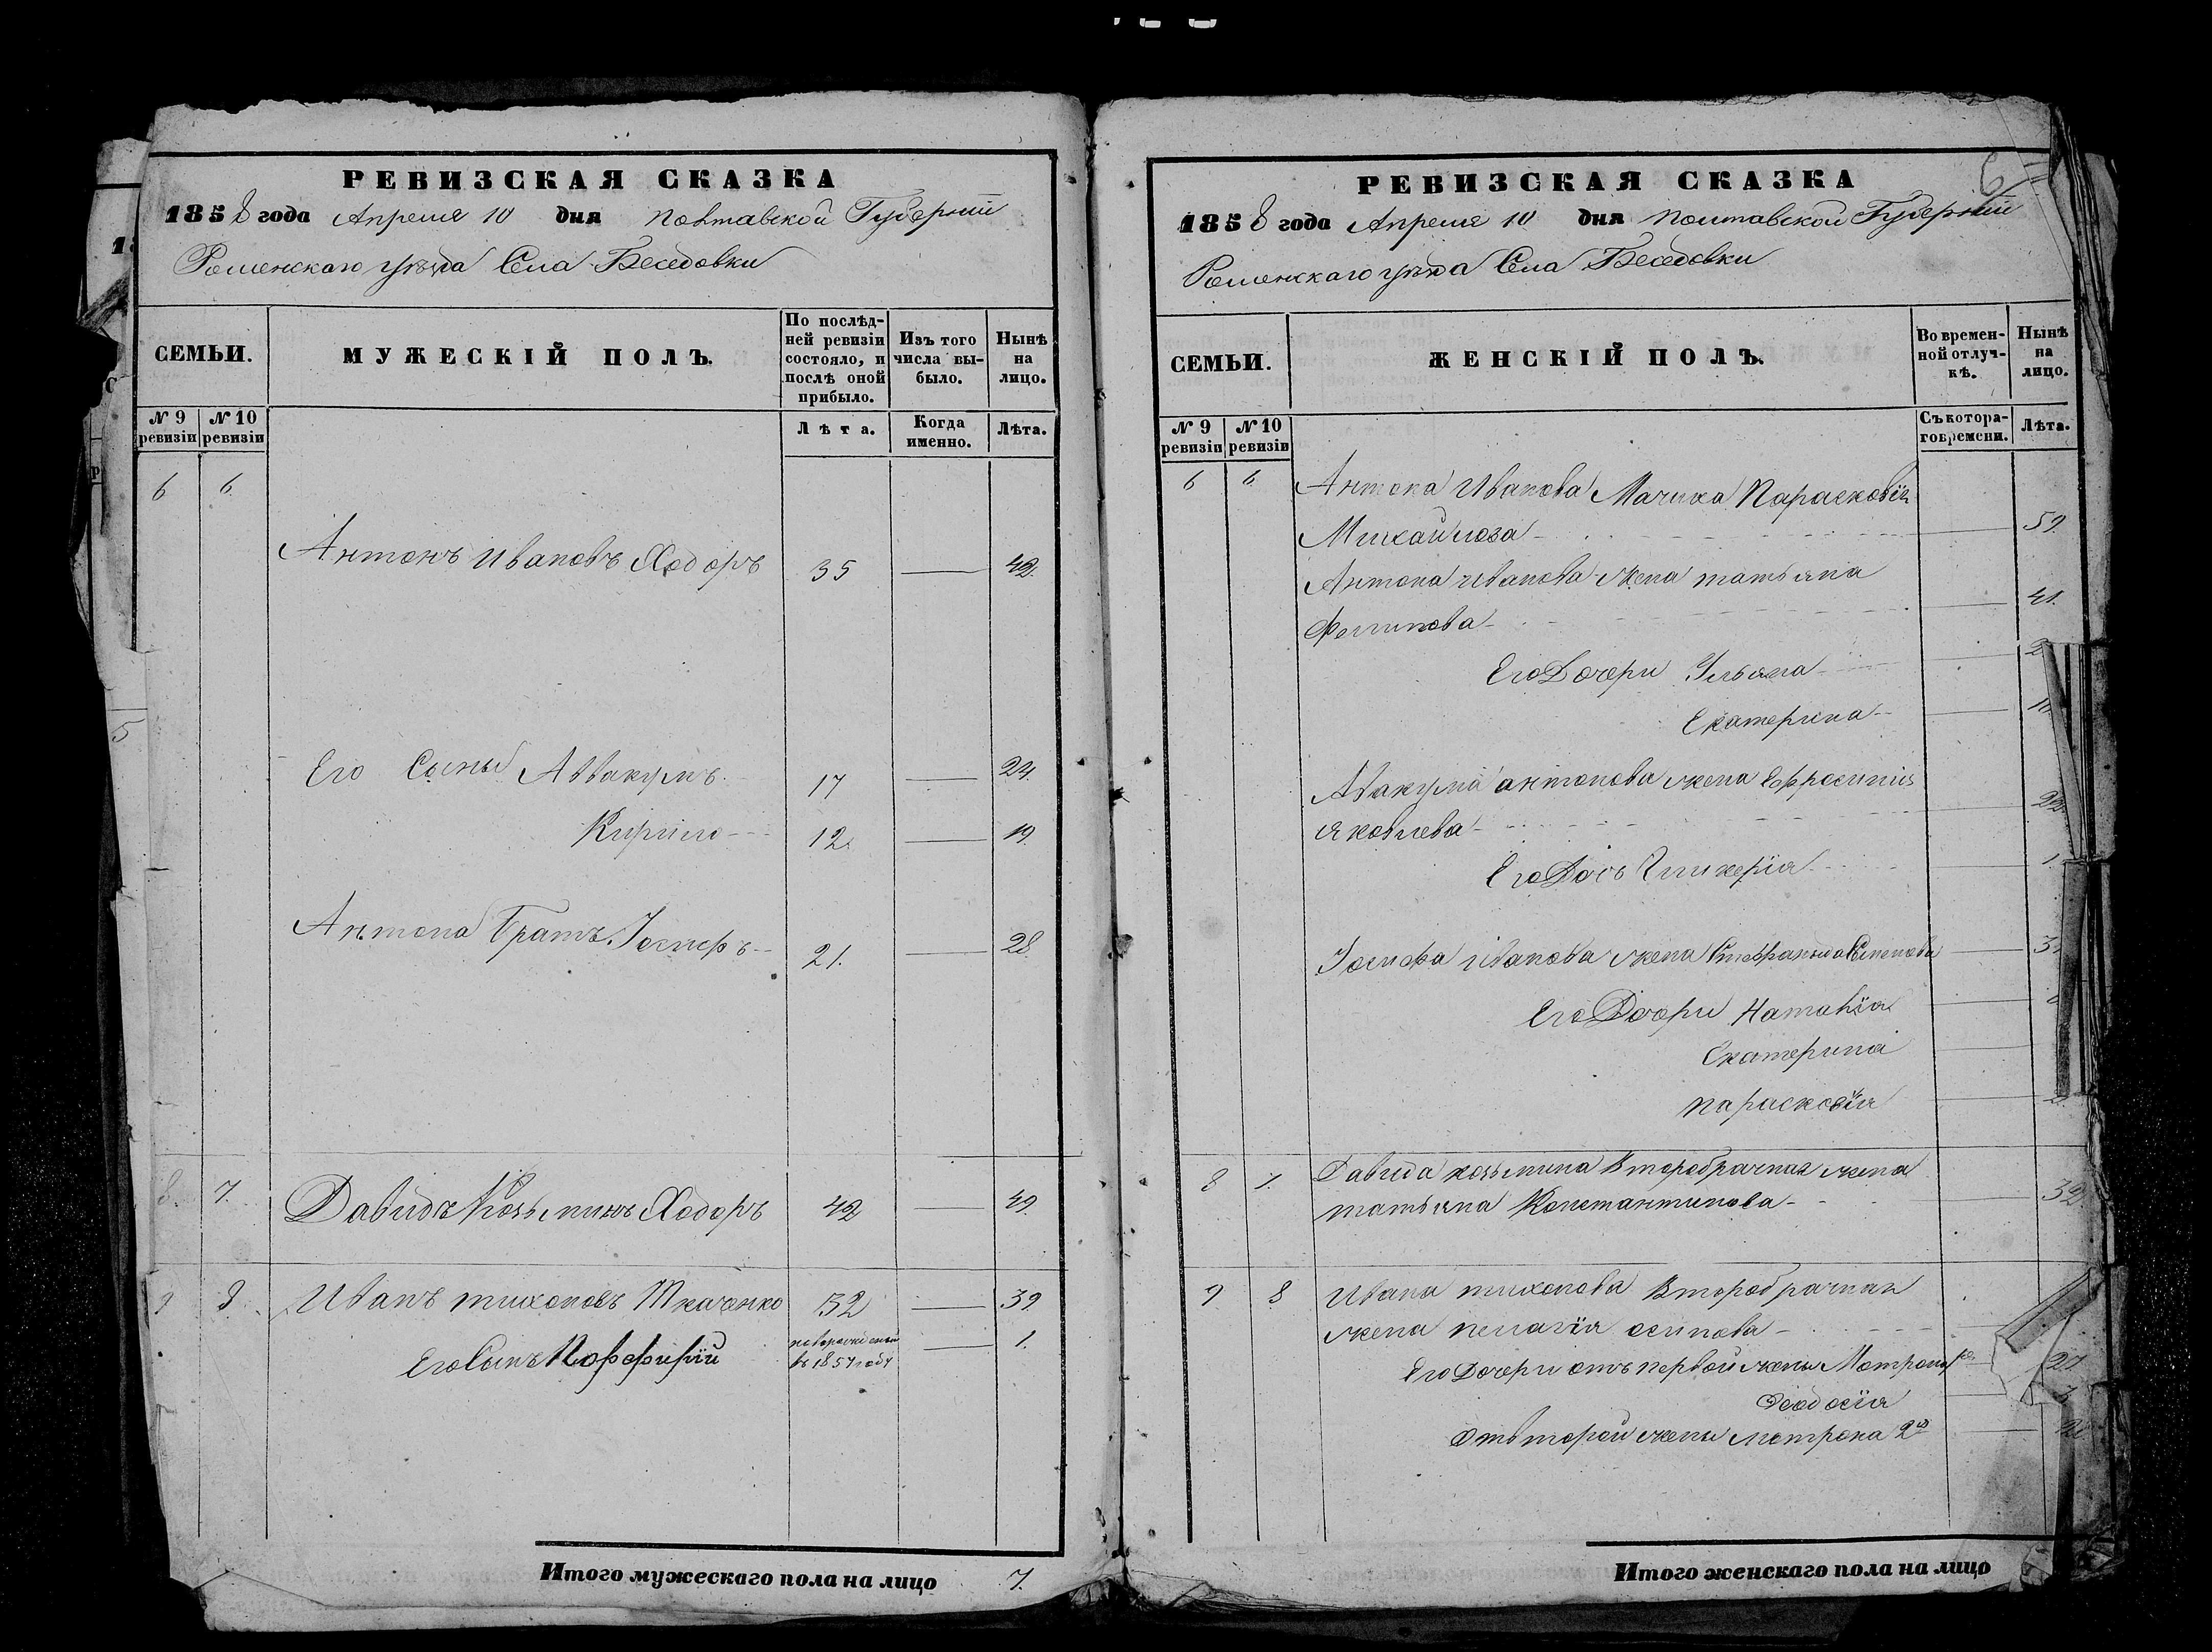 РЕВИЗСКАЯ СКАЗКА
1858 года Апреля 10 дня Полтавской Губерніи
Роменскаго уѣзда Села Беседовки
СЕМЬИ.
МУЖЕСКІЙ ПОЛЪ.
По послѣд-
ней ревизіи
состояло, и
послѣ оной
прибыло.
Изъ того
числа вы-
было.
Нынѣ
на
лицо.
№ 9
ревизіи
№ 10
ревизіи
Лѣта.
Когда
именно.
Лѣта.
6 6
Антонъ Ивановъ Ходоръ 35 42.
Его Сыны Аввакумъ 17 24.
Кирило 12. 19.
Антона Братъ Іосифъ 21. 28
8. 7. Давидъ Козьминъ Ходоръ 42 49.
9 8. Иванъ тихоновъ Ткаченко 32 39
Его Сынъ Порфирій новорожденный 1.
въ 1857 году
Итого мужескаго пола на лицо 7.
6
РЕВИЗСКАЯ СКАЗКА
1858 года Апреля 10 дня Полтавской Губерніи
Роменскаго уѣзда Села Беседовки
СЕМЬИ.
ЖЕНСКІЙ ПОЛЪ.
Во времен-
ной отлуч-
кѣ.
Нынѣ
на
лицо.
№ 9
ревизіи
№ 10
ревизіи
Съ котора-
го времени.
Лѣта.
6 6 Антона Иванова Мачиха Парасковія
Михайлова 59.
Антона иванова жена татьяна
Филипова 41.
Его Дочери Ульяна
Екатерина
Авакума антонова жена Ефросинія
яковлева 22
Его Дочь Гликерія 1.
Іосифа иванова жена
Его Дочери Наталія
Екатерина
параскевія
8 7. Давида козьмина Второбрачная жена
татьяна Константинова 32
9 8 Ивана тихонова Второбрачная
жена пелагія осипова
Его Дочери отъ первой жены Мотрона
Феодосія
Отъ второй жены мотрона 2я
Итого женскаго пола на лицо